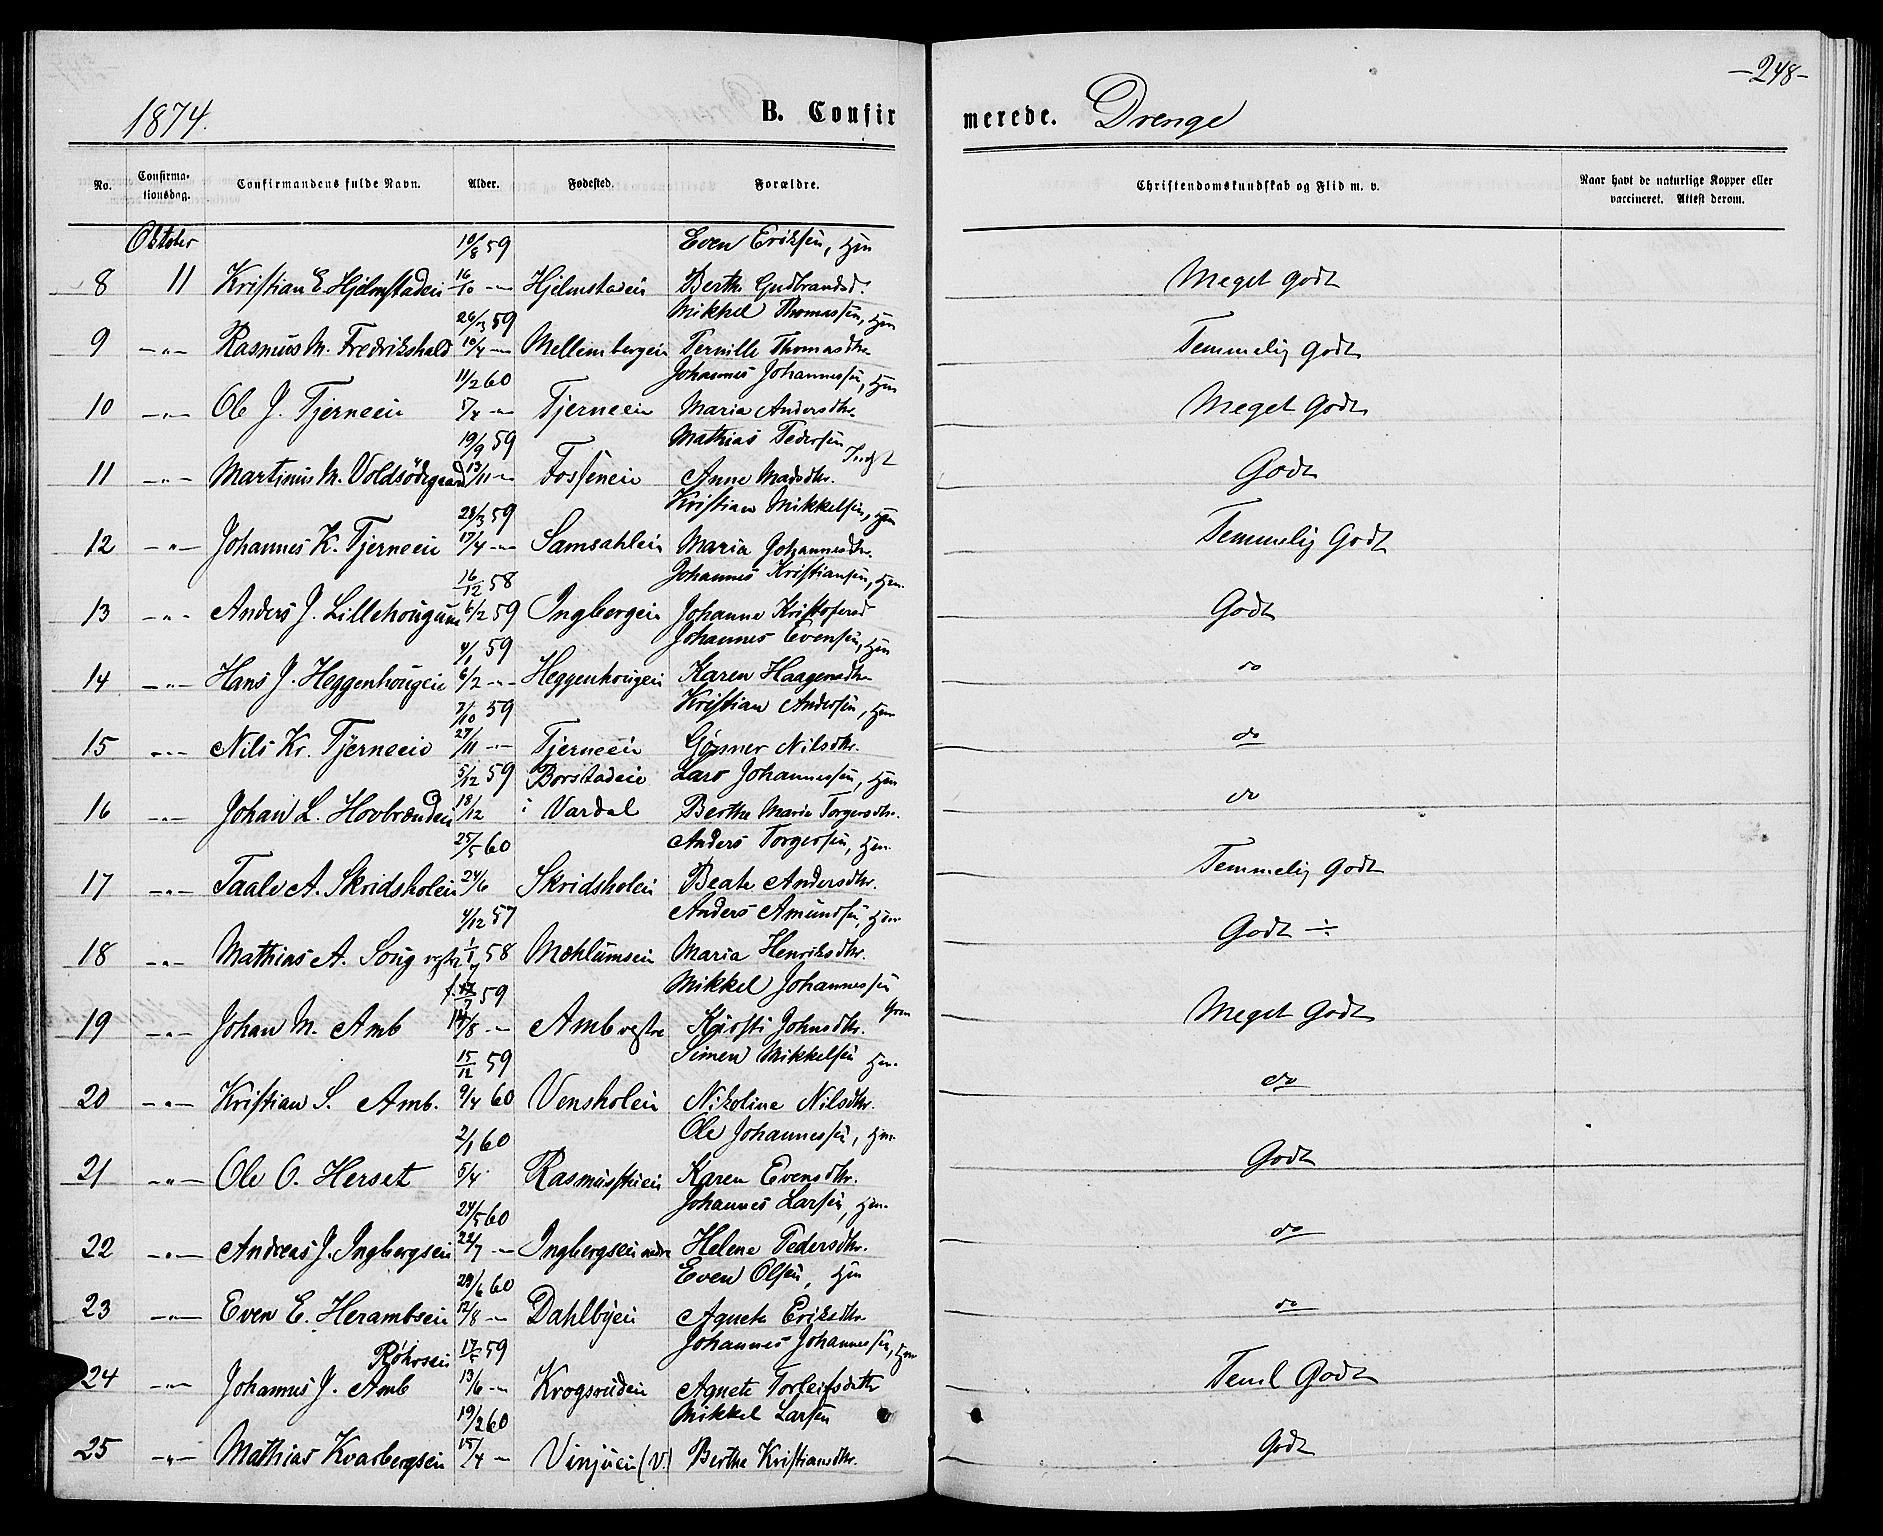 -248-
1874. B. Confirmerede. Drenge
No. Confirmationsdag. Confirmandens fulde Navn. Alder. Fødested. Forældre. Christendomskundskab og Flid m. v. Naar havt de naturlige Kopper eller vaccineret. Attest derom.
Oktober 10/8 59 Even Eriksen, Hjm
8 11 Kristian E. Hjelmstadeie 16/10 -"- Hjelmstadeie Berthe Gudbrandsd. Meget godt
26/3 59 Mikkel Thomassen, Hjm
9 -"- Rasmus M. Fredrikshald 10/4 -"- Mellembergeie Pernille Thomasdtr. Temmelig godt
11/2 60 Johannes Johannessen, Hjm
10 -"- Ole J. Tjerneeie 5/4 -"- Tjerneeie Maria Andersdtr. Meget Godt
19/9 59 Mathias Pedersen
11 -"- Martinus M. Voldsødegaard 13/11 -"- Fosseneie Anne Madsdtr. Godt
28/3 59 Kristian Mikkelsen, Hjm
12 -"- Johannes K. Tjerneeie 17/4 -"- Samsahleie Maria Johannesdtr. Temmelig Godt
16/12 58 Johannes Kristiansen, Hjm.
13 -"- Anders J. Lillehougum 6/2 59 Ingbergeie Johanne Kristofersd Godt
4/1 59 Johannes Evensen, Hjm
14 -"- Hans J. Heggenhougeie 6/2 -"- Heggenhougeie Karen Haagensdtr. do
7/10 59 Kristian Andersen, Hjm
15 -"- Nils Kr. Tjerneeie 27/11 -"- Tjerneeie Gjesner Nilsdtr. do
5/12 59 Borstadeie Lars Johannessen, Hjm
16 -"- Johan L. Hovbrænden 18/12 i Vardal Berthe Marie Torgersdtr. do
25/5 60 Anders Torgersen, Hjm.
17 -"- Taale A. Skridsholeie 24/6 Skridsholeie Beate Andersdtr. Temmelig Godt
4/12 57 Anders Amundsen, Hjm
18 -"- Mathias A. Soug vestre 1/1 58 Mæhlumseie Maria Henriksdtr. Godt ÷
59 Mikkel Johannessen
19 -"- Johan M. Amb 14/8 -"- Amb vestre Kirsti Johnsdtr. Meget Godt
15/12 59 Simen Mikkelsen Hjm.
20 -"- Kristian S. Amb. 9/4 60 Vensholeie Nikoline Nilsdtr. do
2/1 60 Ole Johannessen, Hjm.
21 -"- Ole O. Herset 5/4 Rasmusstueie Karen Evensdtr. Godt
24/5 60 Johannes Larsen, Hjm.
22 -"- Andreas J. Ingbergseie 22/7 -"- Ingbergseie nedre Helene Pedersdtr. do
28/6 60 Even Olsen, Hjm
23 -"- Even E. Herambseie 12/8 -"- Dahlbyeie Agnete Eriksdtr. do
Røhrseie 17/5 59 Johannes Johannessen, Hjm
24 -"- Johannes J. Amb 13/6 -"- Krogsrudeie Agnete Torleifsdatter Teml Godt
19/2 60 Mikkel Larsen
25 -"- Mathias Kvarbergseie 15/4 -"- Vinjueie (V.) Berthe Kristiansdtr. Godt